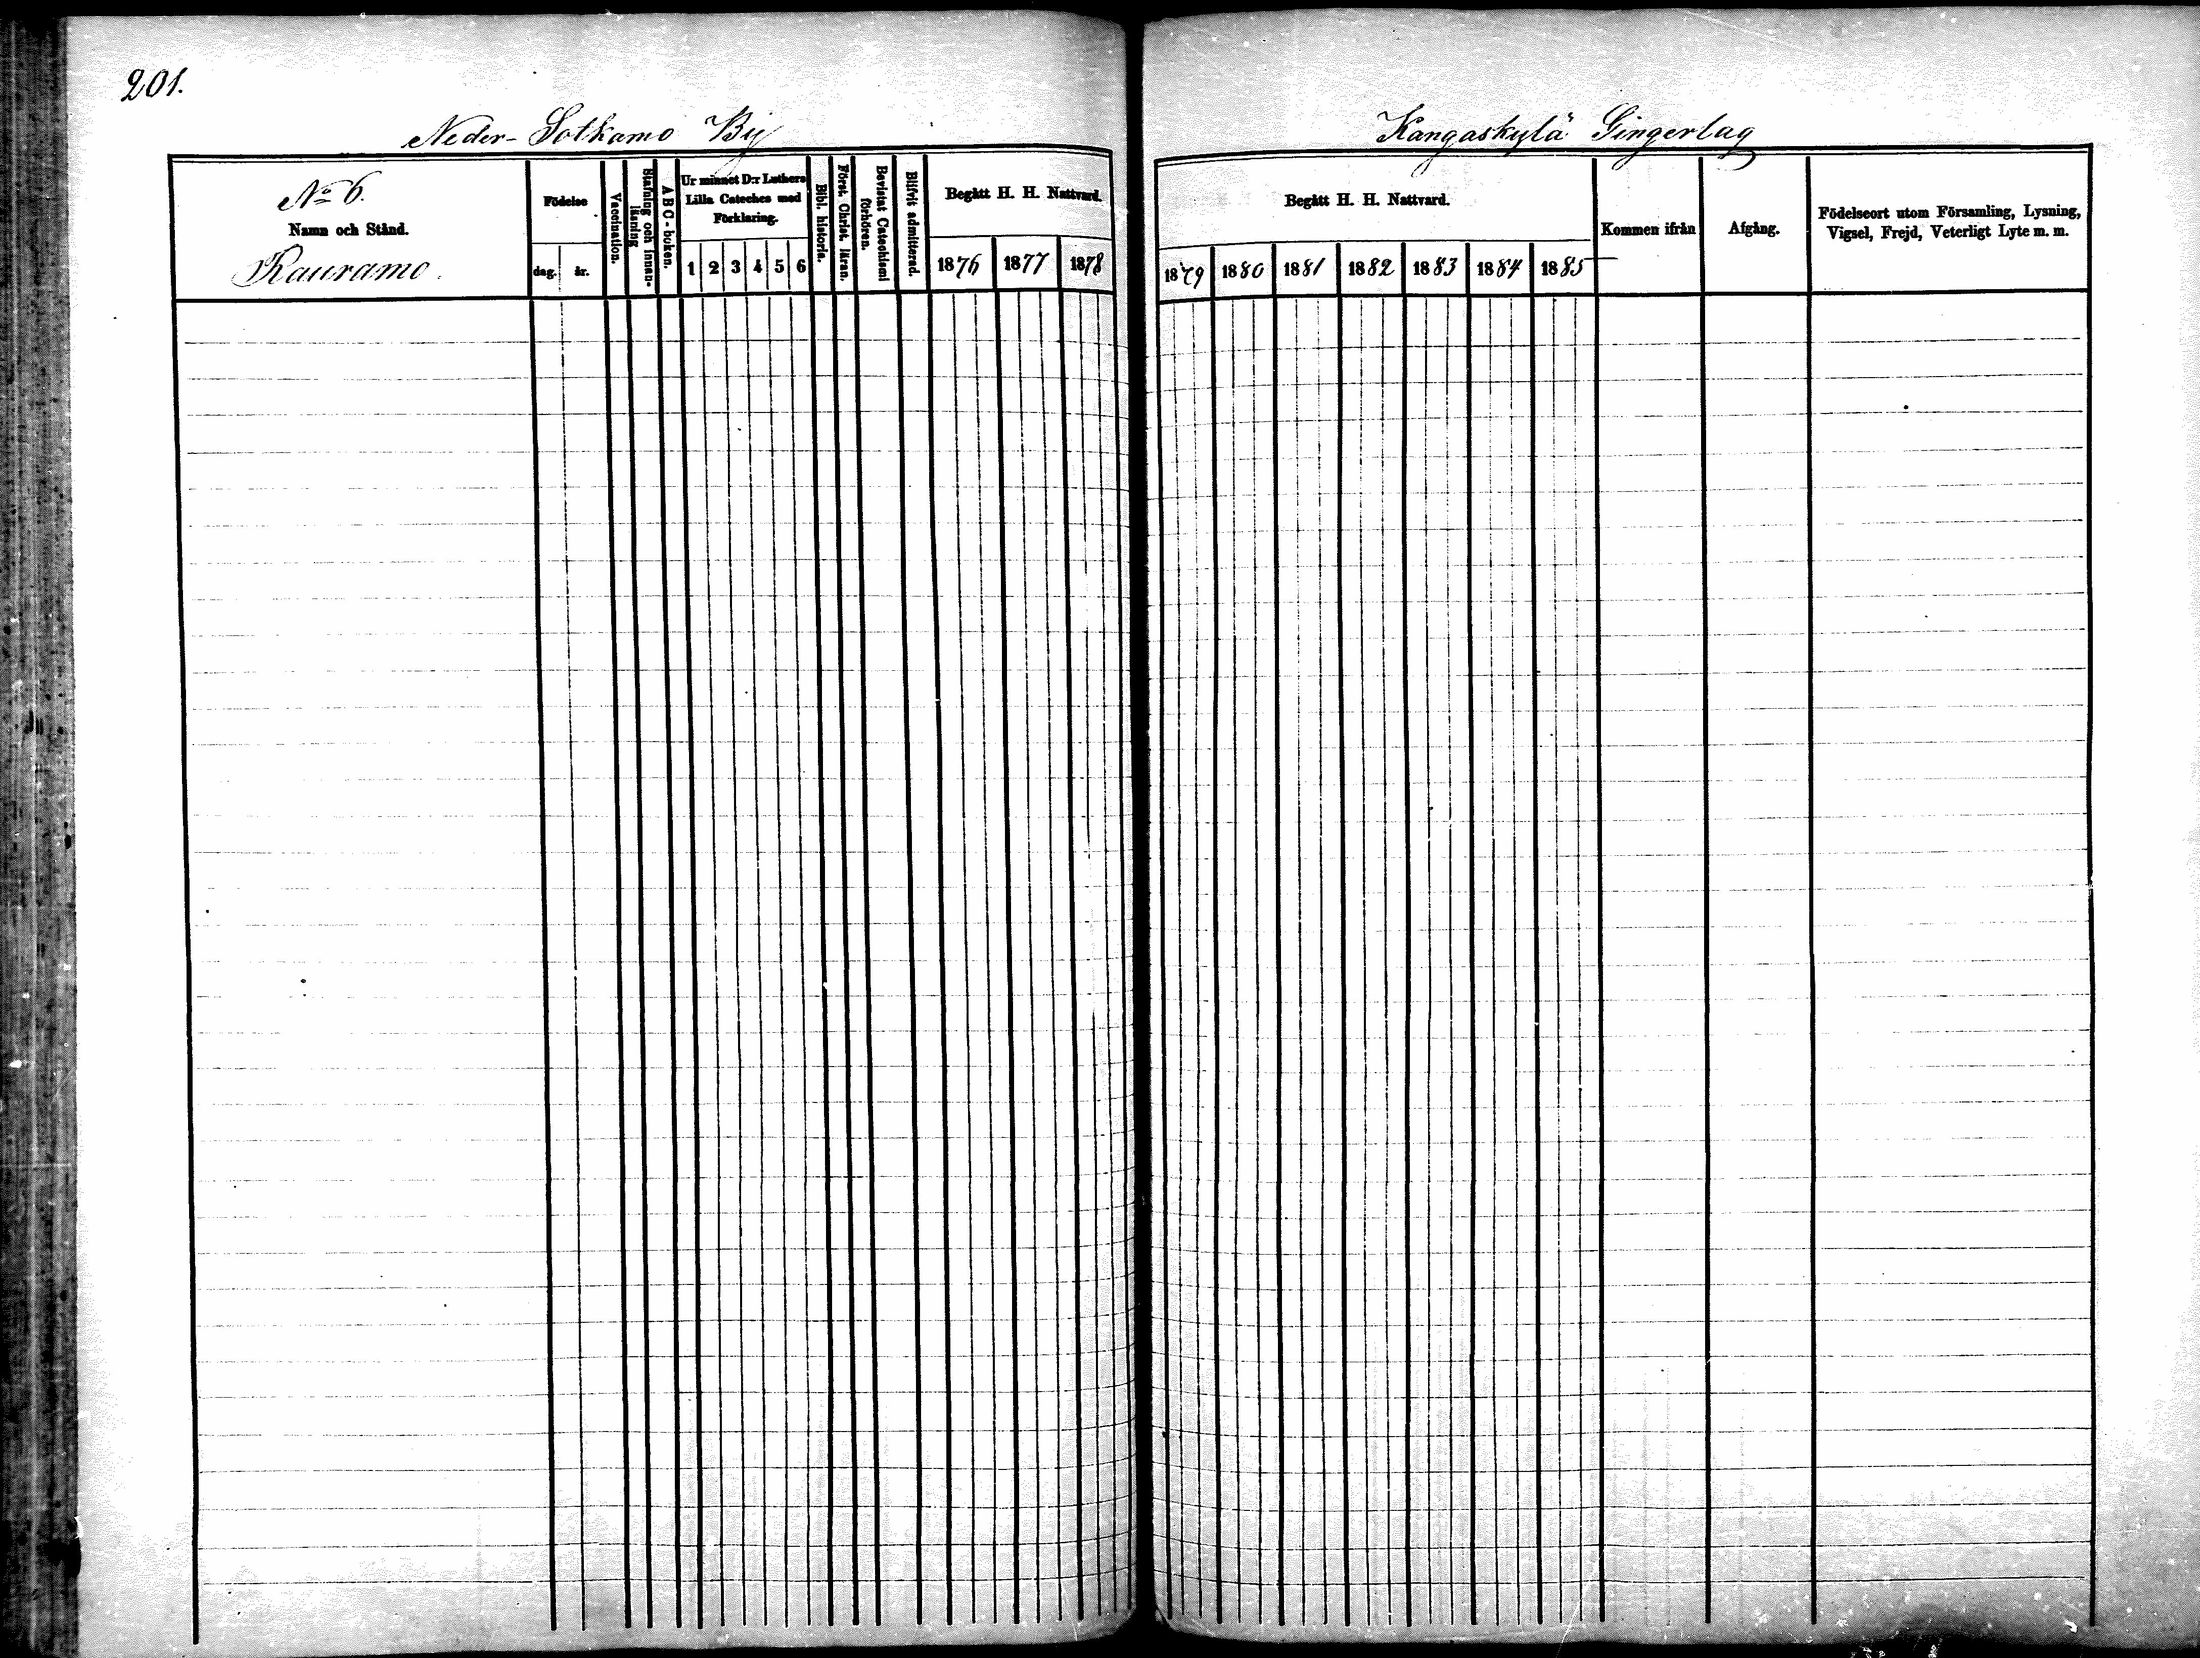 201.
Neder-Sotkamo By
Kangaskylä Gingerlag
No 6.
Namn och Stånd.
Rauramo.
Födelse
dag. år.
Vaccination.
Stafning och innan-
läsning
ABC-boken.
Ur minnet D:r Luthers
Lilla Cateches med
Förklaring.
1 2 3 4 5 6
Bibl. historia.
Först. Christ. läran.
Bevistat Catechismi
förhören.
Blifvit admitterad.
Begått H. H. Nattvard.
1876 1877 1878
Begått H. H. Nattvard.
1879 1880 1881 1882 1883 1884 1885
Kommen ifrån
Afgång.
Födelseort utom Församling, Lysning,
Vigsel, Frejd, Veterligt Lyte m. m.